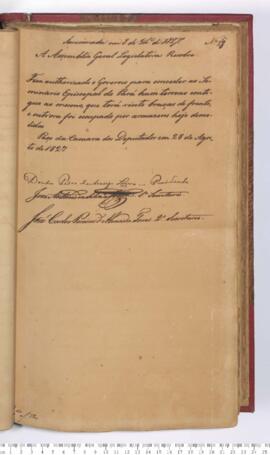 Sanccionada em 8 de 7br.º de 1827
A Assemblea Geral Legislativa Resolve
Fica authorizado o Governo para conceder ao Se-
minario Episcopal do Pará hum terreno conti-
guo ao mesmo, que terá vinte braças de frente,
e outrora foi occupado por armazens hoje demo-
lidos
Paço da Camara dos Deputados em 28 de Agos-
to de 1827
Presidente
José 1º Secretario
José Carlos Pereira d'Almeida Torres 2º Secretario